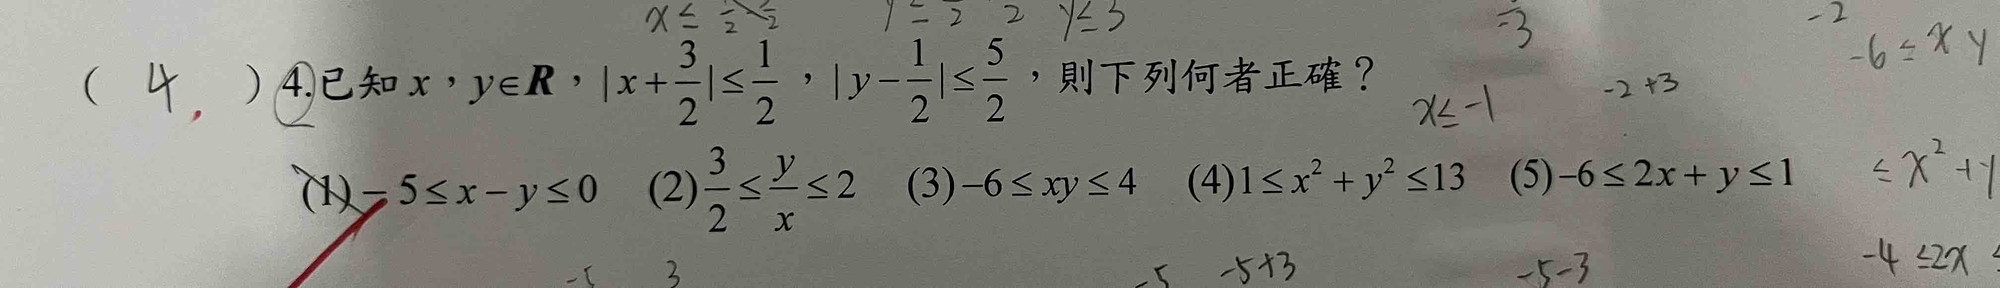 y≤3
-3
-2
-6≤xy
( 4. ) 4.已知 x，y∈R，|x+3/2|≤1/2，|y-1/2|≤5/2，則下列何者正確？
x≤-1
-2+3
(1)-5≤x-y≤0 (2)3/2≤y/x≤2 (3)-6≤xy≤4 (4)1≤x²+y²≤13 (5)-6≤2x+y≤1
≤x²+y
-5 3 -5 -5+3 -5-3 -4≤2x≤